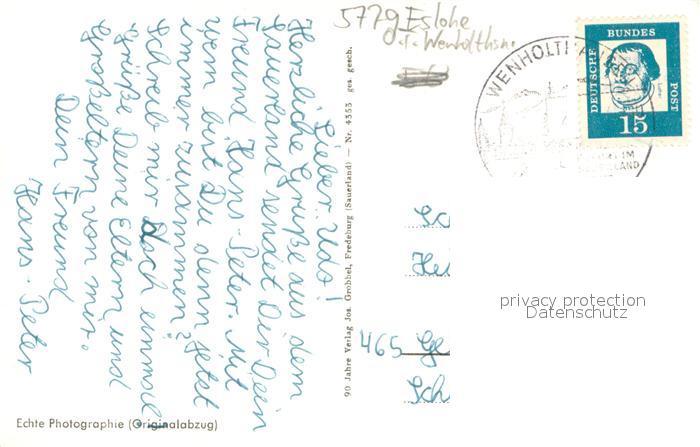 Lieber Udo!
Herzliche Grüße aus dem
Sauerland sendet Dir Dein
Freund Hans-Peter. Mit
wem bist Du denn jetzt
immer zusammen?
Schreib mir doch einmal
Grüße Deine Eltern und
Großeltern von mir.
Dein Freund
Hans-Peter
Echte Photographie (Originalabzug)
90 Jahre Verlag Jos. Grobbel, Fredeburg (Sauerland) — Nr. 4353 ges. gesch.
5779 Eslohe
WENHOLTHAUSEN
DEUTSCHE BUNDES POST
Luther
15
Sc
He
465 Ge
Sch
privacy protection
Datenschutz